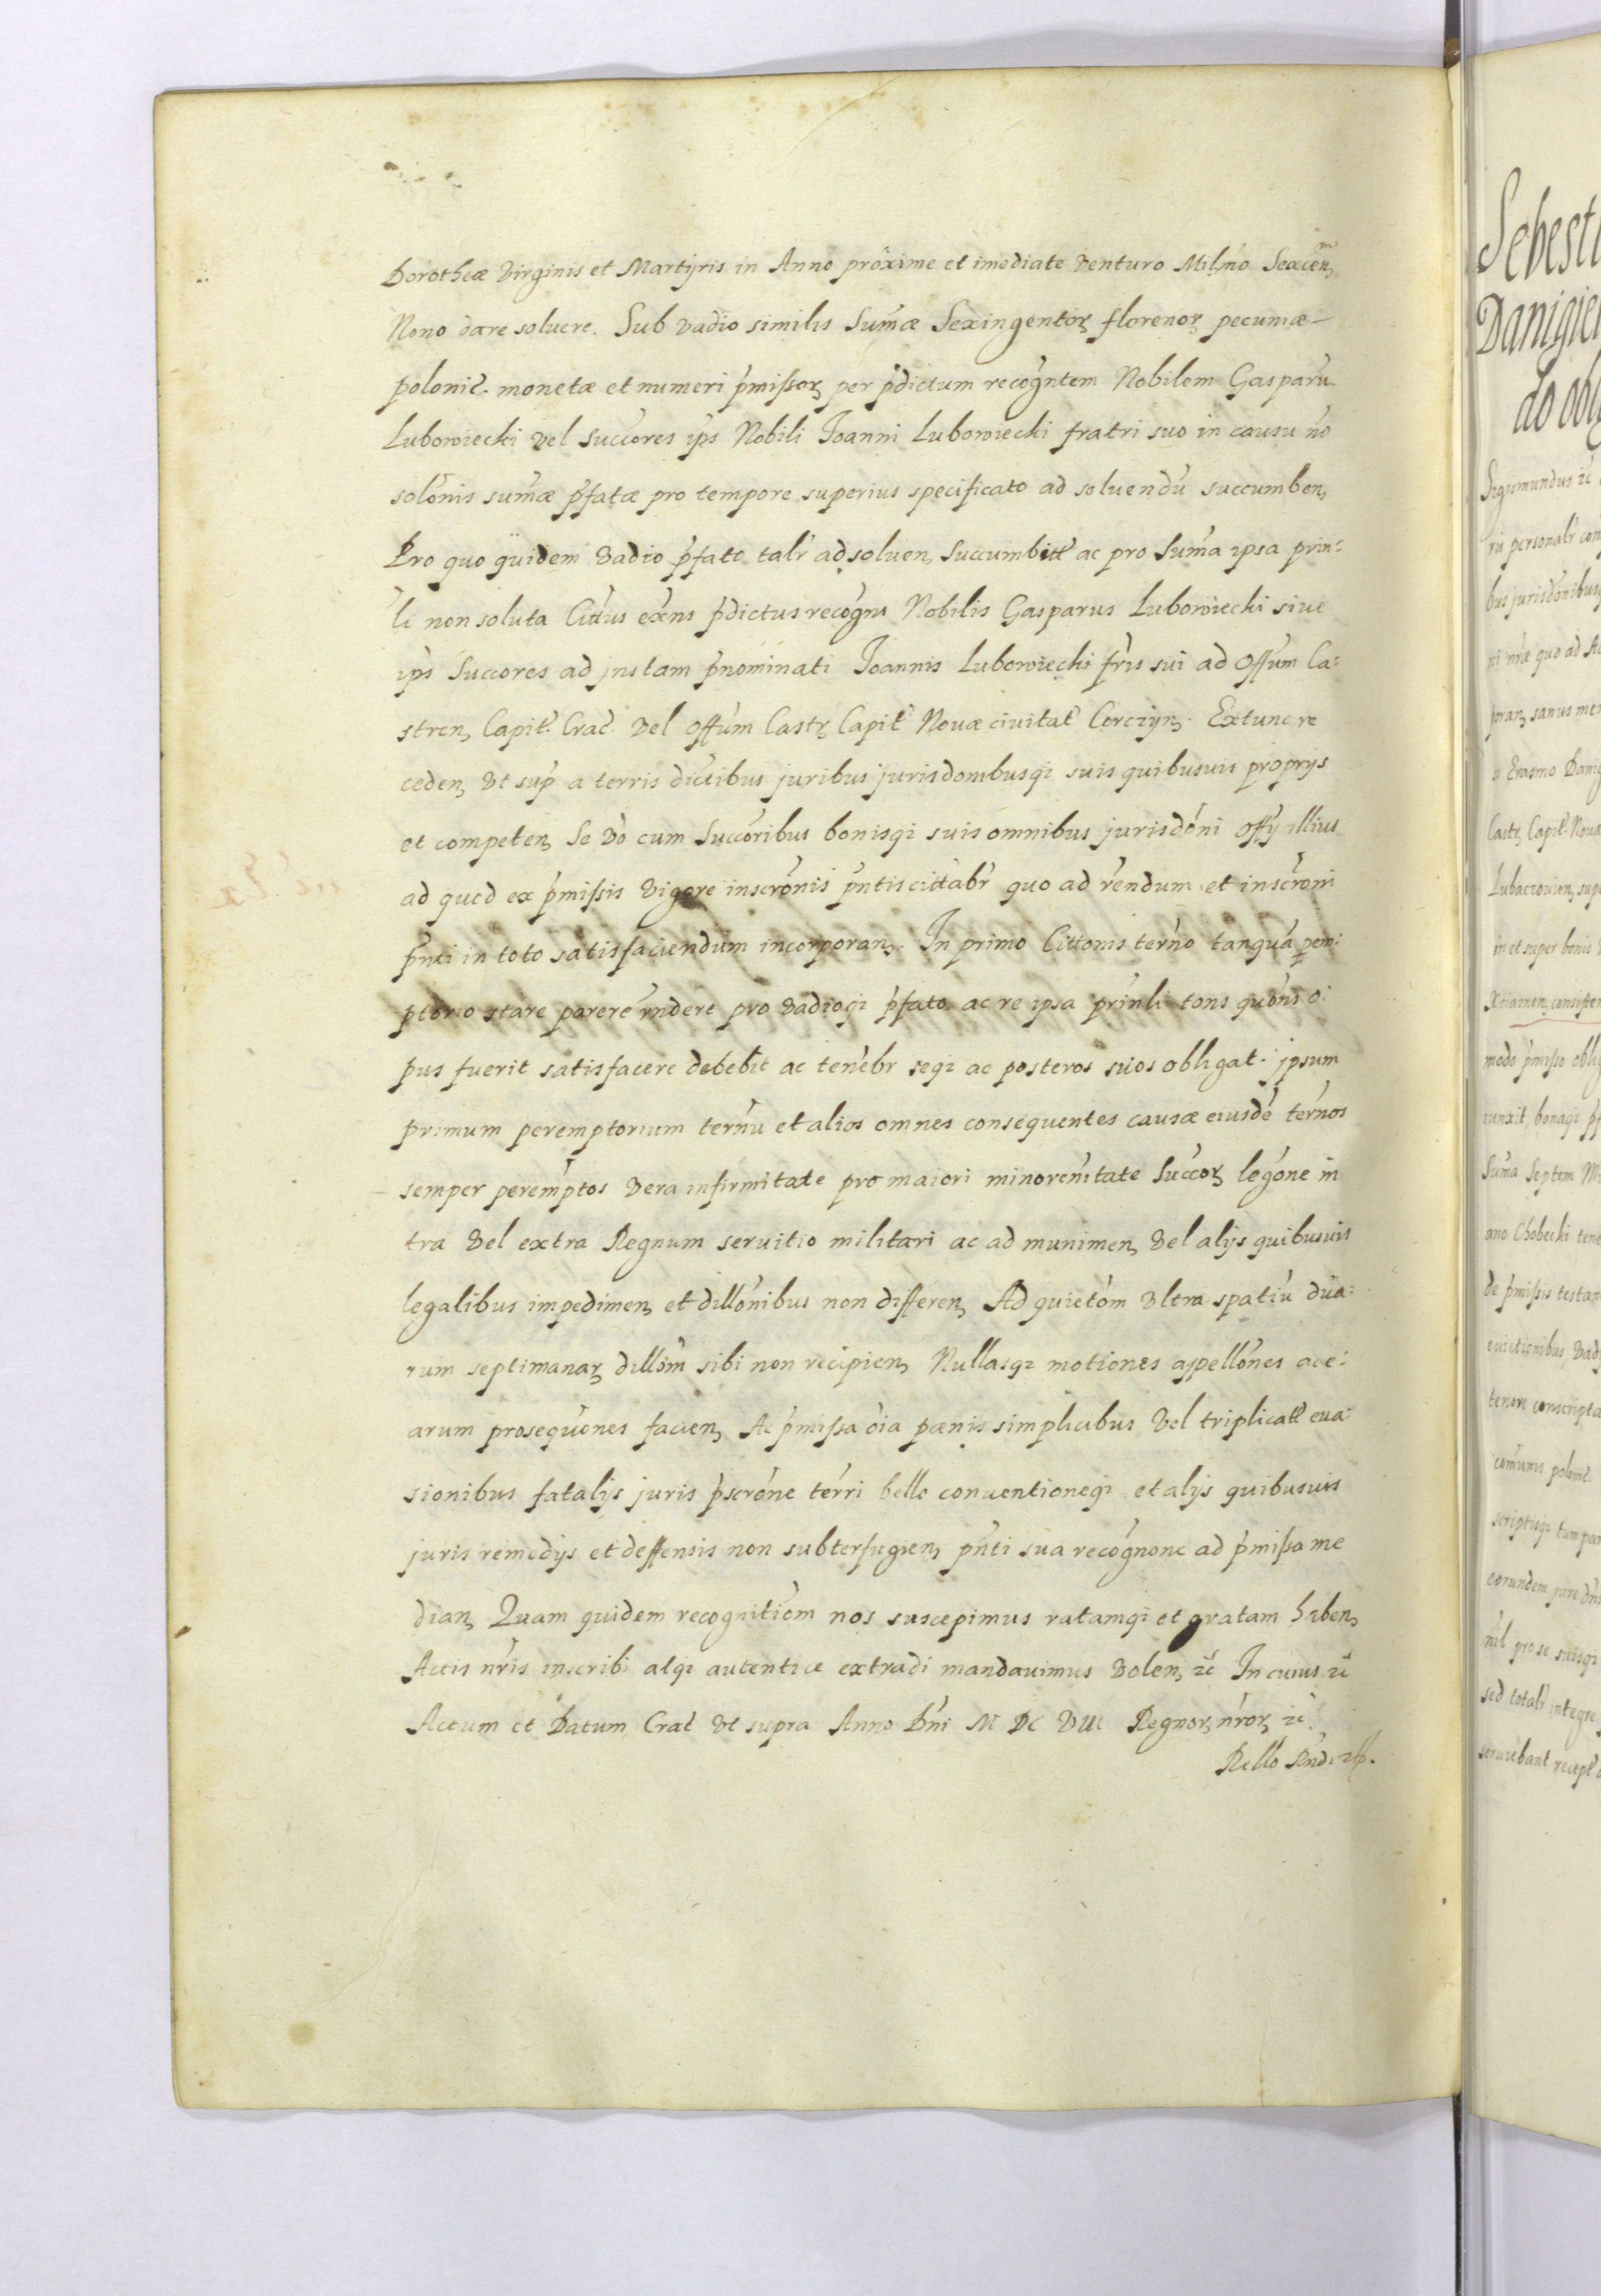 Dorotheæ Virginis et Martyris in Anno proxime et imediate venturo Mil̃no Sexcen̄
Nono dare soluere. Sub vadio similis Sum̃æ Sexingentor̃ florenor̃ pecuniæ
polonic̃. monetæ et numeri p̃missor̃ per p̃dictum recog̃ntem Nobilem Gasparũ
Lubowiecki vel Succores ip̃s Nobili Joanni Lubowiecki fratri suo in causu nõ
solõnis sum̃æ p̃fatæ pro tempore superius specificato ad soluendũ succumben̄
Pro quo quidem vadio p̃fato talr̃ ad soluen̄ Succumbitt̃ ac pro Sum̃a ipsa prin:
li non soluta Cittus ex̃ns p̃dictus recog̃ns Nobilis Gasparus Lubowiecki siue
ip̃s Succores ad jnstam p̃nominati Joannis Lubowiecki fr̃is sui ad Off̃um Ca:
stren̄ Capit̃. Crac̃. vel Off̃um Castr̃ Capit̃ Nouæ ciuitat̃ Corczyn̄. Extunc re
ceden̄ vt sup̃ a terris dictibus juribus jurisdombusq; suis quibusuis proprijs
et competen̄ Se võ cum Succoribus bonisq; suis omnibus jurisdõni Offy illius
ad quod ex p̃missis vigore inscrõnis p̃ntis cittabr̃ quo ad r̃endum et inscrõni
p̃nti in toto satisfaciendum incorporan̄. In primo Cittonis ter̃no tanquã pem:
ptorio stare parere r̃ndere pro vadioq; p̃fato ac re ipsa prin̄li tons quõns o:
pus fuerit satisfacere debebit ac tenebr̃ seq; ac posteros suos obligat. jpsum
primum peremptorium ter̃nũ et alios omnes consequentes causæ eiusdẽ ter̃nos
semper perem̃ptos vera infirmitate pro maiori minoren̄itate Succor̃ legõne in
tra vel extra Regnum seruitio militari ac ad munimen̄ vel alijs quibusuis
legalibus impedimen̄ et dillõnibus non differen̄ Ad quietõm vltra spatiũ dua:
rum septimanar̃ dillõm sibi non recipien̄ Nullasq; motiones appellõnes ac e:
arum prosequõnes facien̄ Ac p̃missa oĩa pœnis simplicibus vel triplicatt̃ eua:
sionibus fatalijs juris p̃scrõne ter̃ri bello conuentioneq; et alijs quibusuis
juris remedijs et deffensis non subterfugien̄ p̃nti sua recog̃none ad p̃missa me
dian̄ Quam quidem recognitiõm nos suscepimus ratamq; et gratam haben̄
Actis nr̃is inscribi atq; autentice extradi mandauimus volen̄ ꝛc̃ In cuius ꝛc̃
Actum et Datum Crac̃ vt supra Anno Dñi M DC VIII Regnor̃ nr̃or̃ ꝛc̃.
Sebest
Danigie
do obl
Sigismundus ꝛc̃
rũ personalr̃ com
bus jurisdõnibus
ni nr̃æ quo ad Ac
poran̄ sanus men
o Erasmo Danig
Castr̃ Capit̃. Noua
Lubaczouien̄ supe
in et super bonis
Xtiaznen̄ consisten
modo p̃misso oblig
iunxit, bonaq; p̃f
Sum̃a Septem Mi
ano Chobecki tene
de p̃missis testam
euictionibus vady
tenore conscripta
com̃unis polonic̃.
scriptisq; tam par
eorundem jure dn̄i
nil pro se suisq;
sed totalr̃ integre
seruiebant recept̃